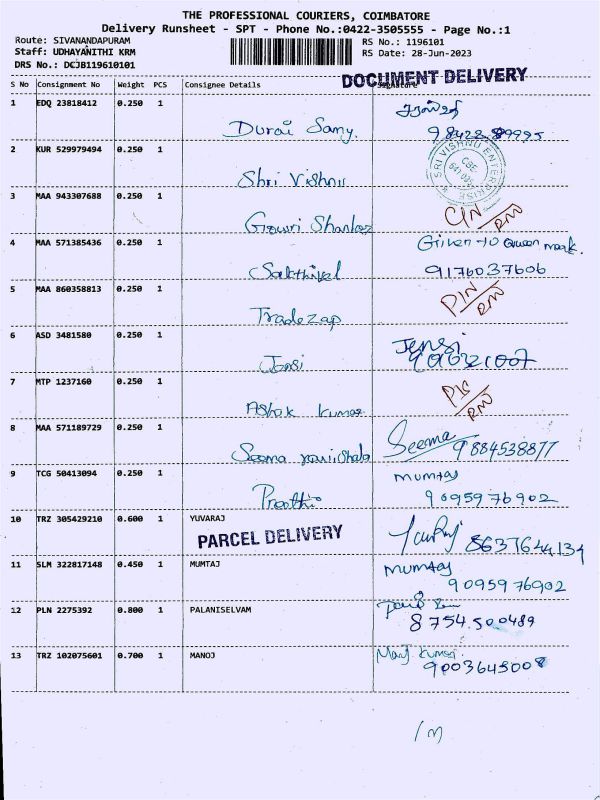 THE PROFESSIONAL COURIERS, COIMBATORE
Delivery Runsheet - SPT - Phone No.:0422-3505555 - Page No.:1
Route: SIVANANDAPURAM RS No.: 1196101
Staff: UDHAYANITHI KRM RS Date: 28-Jun-2023
DRS No.: DCJB119610101
DOCUMENT DELIVERY
S No Consignment No Weight PCS Consignee Details Signature
1 EDQ 23818412 0.250 1
Durai Samy.
2 KUR 529979494 0.250 1
SRI VISHNU ENTERPRISE
CBE
Shri Vishnu
3 MAA 943307688 0.250 1
Gowri Shankar
4 MAA 571385436 0.250 1 Given to Queen mark.
Sakthivel 9176037606
5 MAA 860358813 0.250 1
Tradezap
6 ASD 3481580 0.250 1 Jensi
Jensi
7 MTP 1237160 0.250 1
Ashok Kumar
8 MAA 571189729 0.250 1 Seema
Seema 9884538877
9 TCG 50413094 0.250 1 Mumtaj
Preethi 9095976902
10 TRZ 305429210 0.600 1 YUVARAJ
PARCEL DELIVERY 8637644134
11 SLM 322817148 0.450 1 MUMTAJ Mumtaj
9095976902
12 PLN 2275392 0.800 1 PALANISELVAM
8754500489
13 TRZ 102075601 0.700 1 MANOJ Manoj Kumar
9003645008